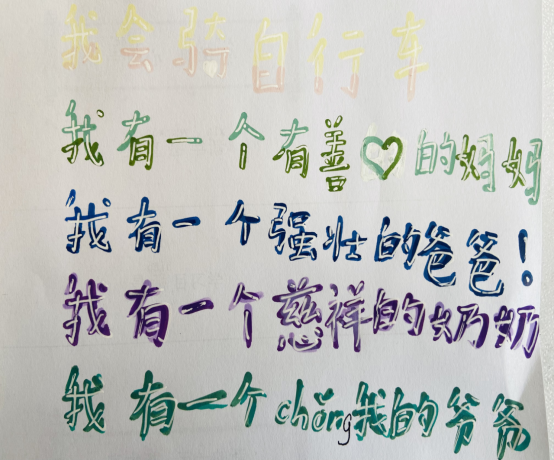 我会骑自行车
我有一个有善♡的妈妈
我有一个强壮的爸爸！
我有一个慈祥的奶奶
我有一个chǒng我的爷爷